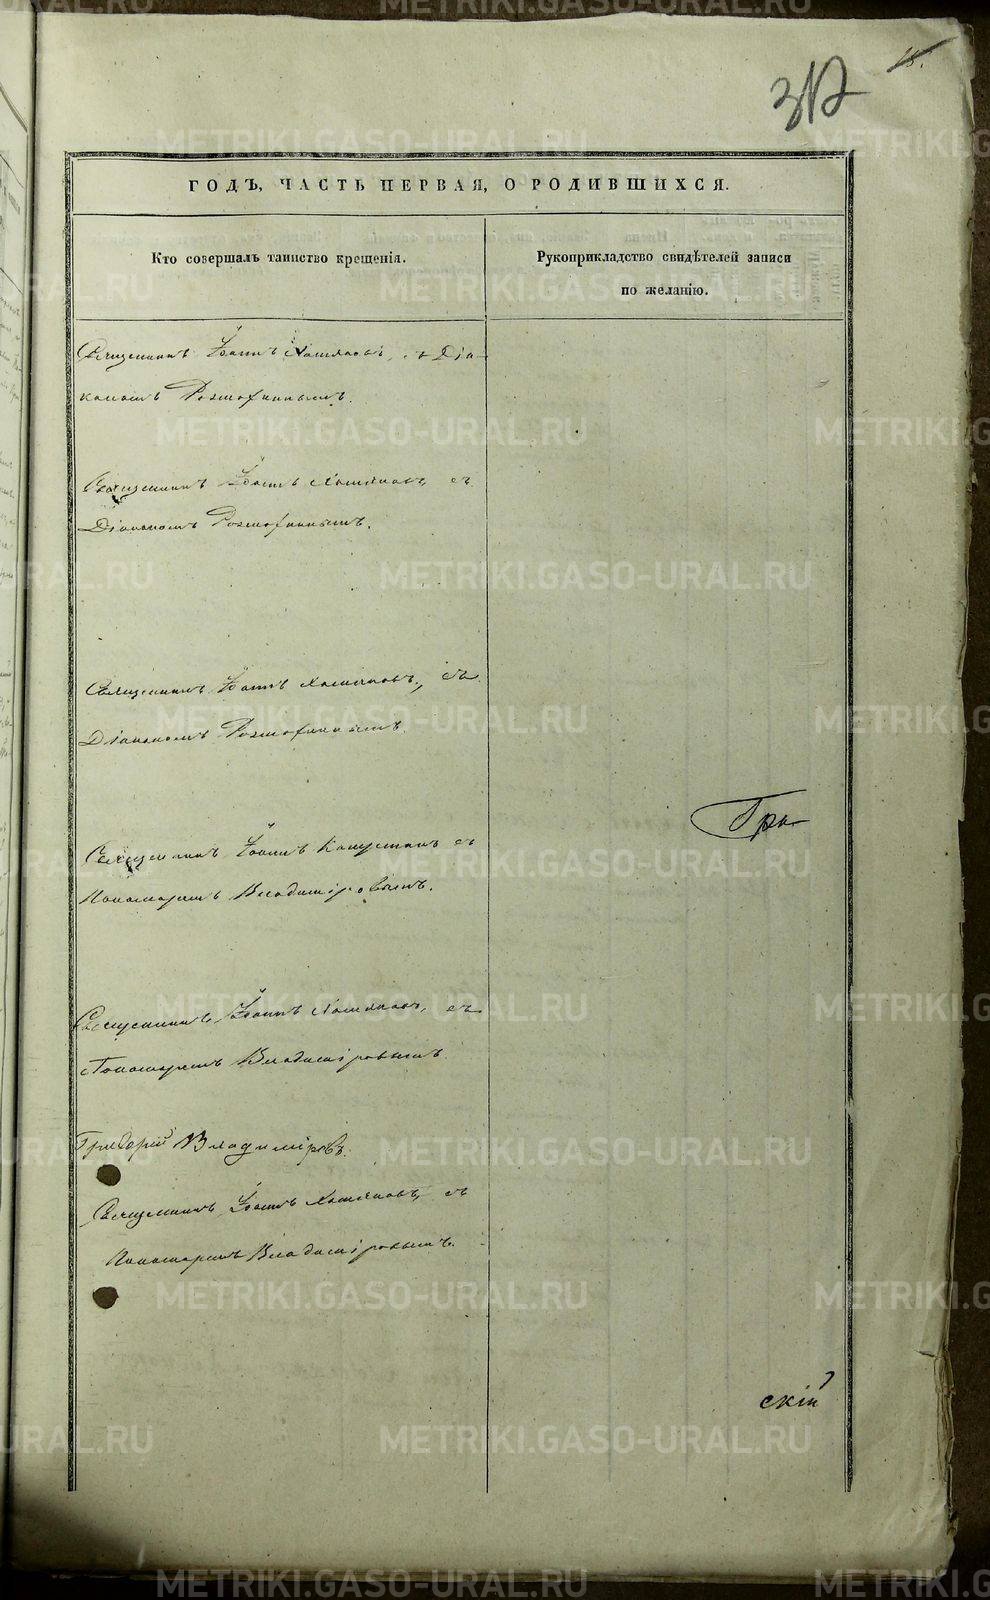 18.
312
ГОДЪ, ЧАСТЬ ПЕРВАЯ, О РОДИВШИХСЯ.
Кто совершалъ таинство крещенія.
Рукоприкладство свидѣтелей записи
по желанію.
Священникъ Іоаннъ Хомяковъ, съ Діа-
кономъ
Священникъ Іоаннъ Хомяковъ, съ
Діакономъ
Священникъ Іоаннъ Хомяковъ, съ
Діакономъ
Гра
Священникъ Іоаннъ Капустинъ съ
Пономаремъ Владиміровымъ.
Священникъ Іоаннъ Хомяковъ, съ
Пономаремъ Владиміровымъ.
Григорій Владиміровъ.
Священникъ Іоаннъ Хомяковъ, съ
Пономаремъ Владиміровымъ.
скій
METRIKI.GASO-URAL.RU